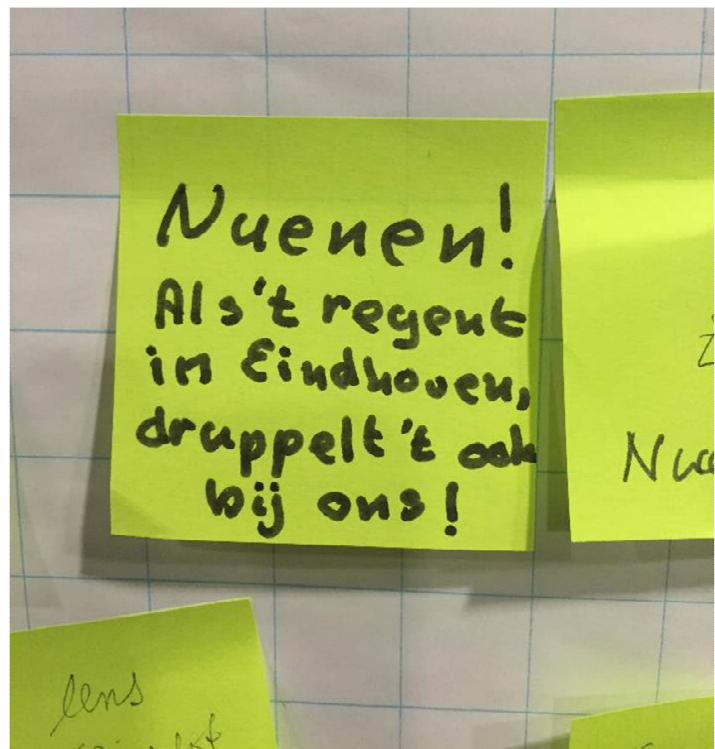 Nuenen!
Als't regent
in Eindhoven,
druppelt 't ook
bij ons!
lens